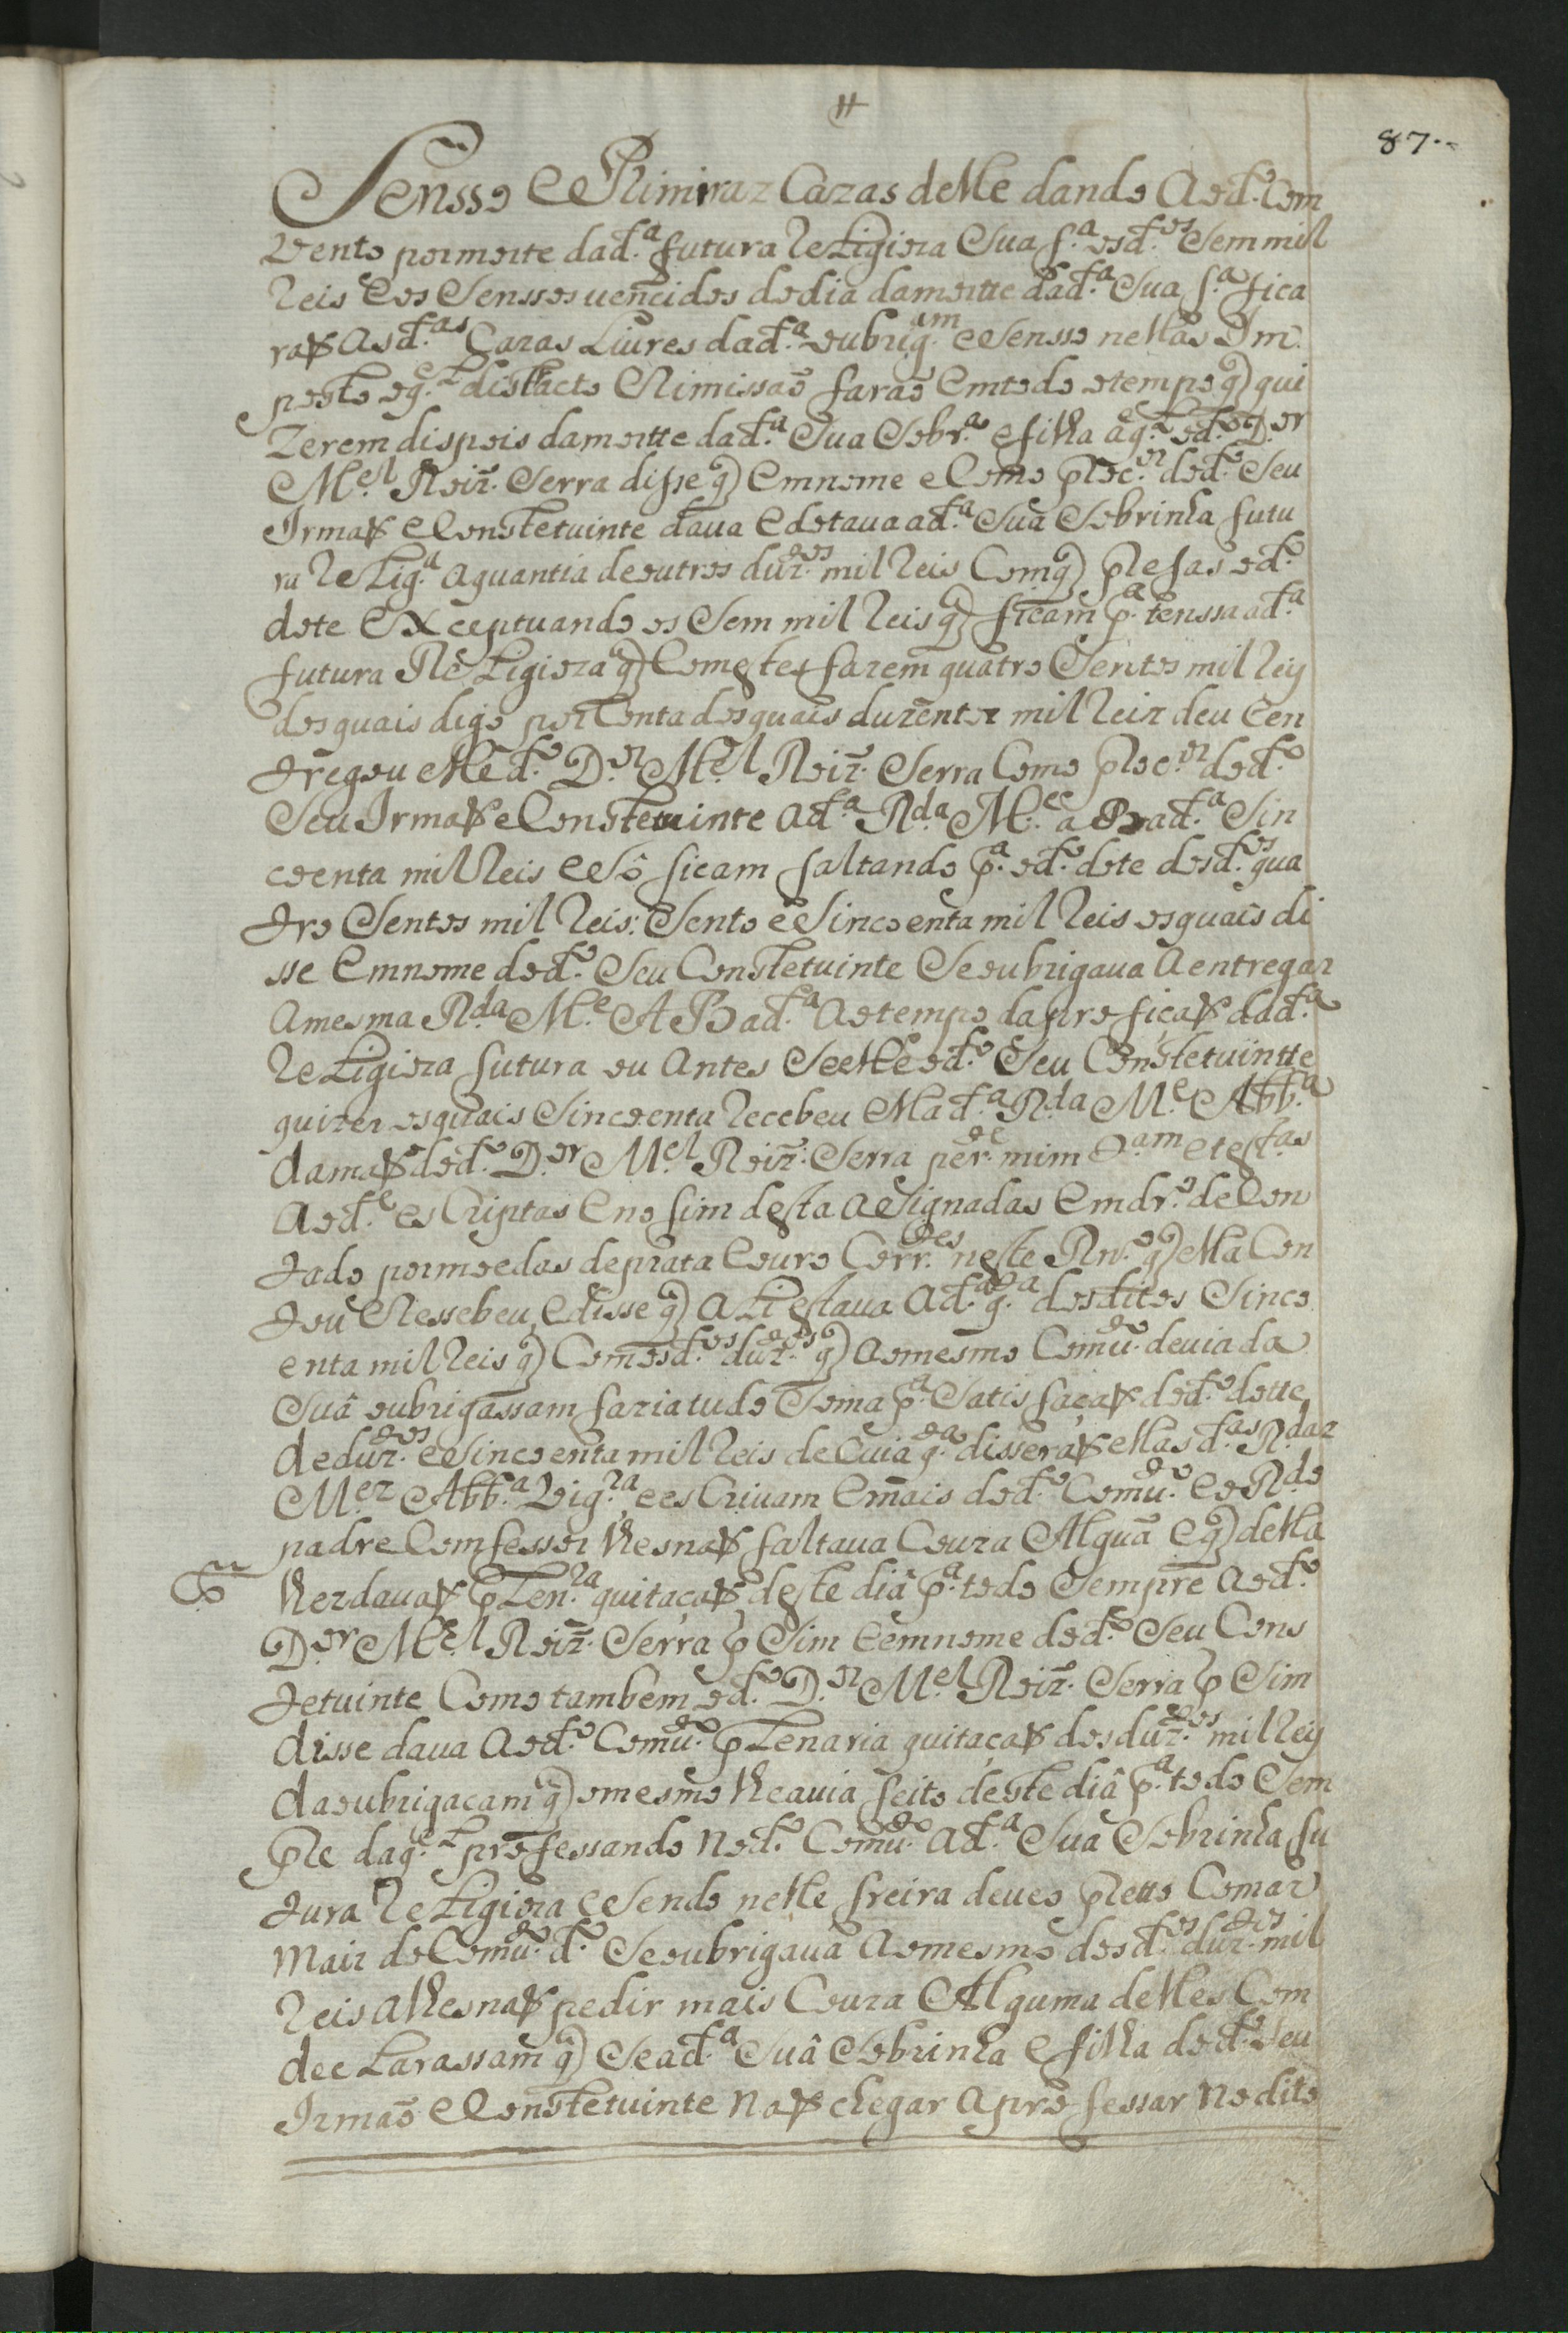 87
Sensso e Rimiraz Cazas delle dando Aod.º Com
vento por morte dad.ª futura Religioza Sua f.ª osd.os Sem mil
Reis e os Senssos uencidos do dia da morte dad.ª Sua f.ª fica
raõ Asd.as Cazas Liures dad.ª oubrig.am e Sensso nellas Im
posto og.l distracto e Rimissaõ faraõ Emtodo otempo q̃ qui
zerem dispois damortte dad.ª Sua Sobr.ª e filha e od.º D.or
M.el Roiz. Serra disse q̃ Emnome e Como proc.or dod.º Seu
Irmaõ e Constetuinte daua e dotaua ad.ª Sua Sobrinha futu
ra Relig.ª aquantia deoutros duz.os mil Reis Com q̃ prefas od.º
dote Exceptuando os Sem mil Reis q̃ ficam p.ª tenssa ad.ª
futura Religioza q̃ Com estes fazem quatro Sentos mil Reis
dos quais digo por Conta dos quais duzentos mil Reis deu e en
tregou elle d.º D.or M.el Roiz. Serra Como proc.or dod.º
Seu Irmaõ e Constetuinte Ad.ª R.da M.e aBad.ª Sin
coenta mil Reis e Sô ficam faltando p.ª od.º dote dosd.os qua
tro Sentos mil Reis: Sento e Sincoenta mil Reis osquais di
sse Emnome dod.º Seu Constetuinte Seoubrigaua Aentregar
Amesma R.da M.e ABad.ª Aotempo da profiçaõ dad.ª
Religioza futura ou Antes Se elle od.º Seu Constetuintte
quizer osquais Sincoenta Recebeu Ella d.ª R.da M.e Abb.ª
damaõ dod.º D.or M.el Roiz. Serra per.de mim T.am e test.as
Aod.e esCriptas e no fim desta aSignadas Emdr.º deCon
tado pormoedas deprata e ouro Corr.es neste Rn.º q̃ ella Con
tou e Ressebeu, e disse q̃ ali estaua Ad.ª q.ª dosditos Sinco
enta mil Reis q̃ Com osd.os duz.os q̃ aomesmo Comu.to deuia da
Suâ oubrigassam fazia tudo Soma p.ª Satisfaçaõ dod.º dotte
deduz.os e Sincoenta mil Reis de Cuia q.ª disseraõ ellas d.as R.das
M.ez Abb.ª Vig.ra e esCriuam e mais dod.º Comu.to e o R.do
padre Comfessor lhes naõ faltaua Couza Alguã e q̃ della
lhe daua p Len.ra quitaçaõ deste diâ p.ª todo Sempre Aod.º
D.or M.el Roiz. Serra p Sim e emnome dod.º Seu Cons
tetuinte Como tambem od.º D.or M.el Roiz. Serra p Sim
disse daua Aod.º Comu.to pLenaria quitaçaõ dosduz.os mil Reis
daoubrigacam q̃ omesmo lheauia feito deste diâ p.ª todo Sem
pre daq.l professando Nod.º Comu.to Ad.ª Sua Sobrinha fu
tura Religioza e Sendo nelle freira deueo pretto Comaz
Maiz do Comu.to d.º Seoubrigaua Aomesmo dosd.os duz.os mil
Reis alhes naõ pedir mais Couza Alguma delles Com
decLarassam q̃ Sead.ª Suâ Sobrinha e filha dod.º Seu
Irmaõ e Constetuinte Naõ chegar Aprofessar Nodito